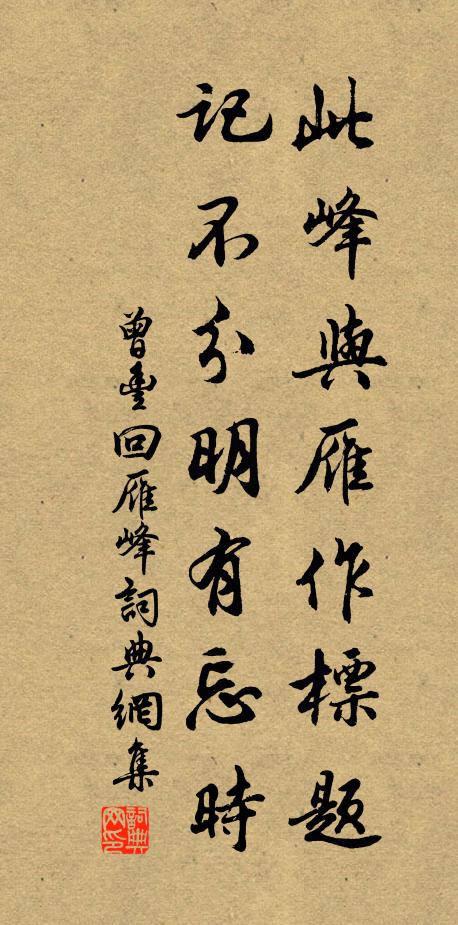 此峰與雁作標題
記不分明有忘時
曾豊回雁峰詞典網集
詞典網印